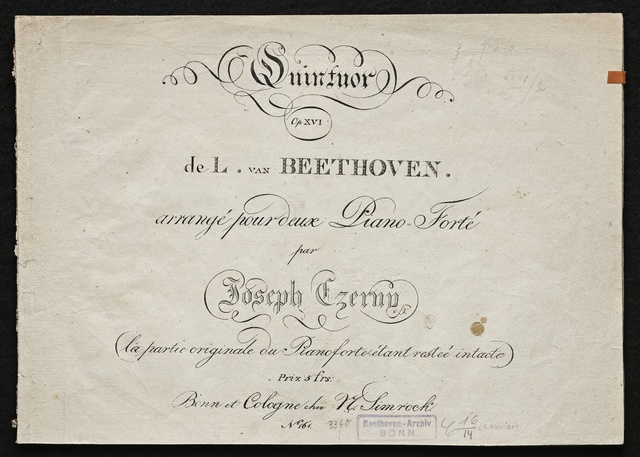 Quintuor
Op XVI
de L. VAN BEETHOVEN.
arrangé pour deux Piano-Forté
par
Joseph Czerny
(la partie originale du Pianoforte étant restée intacte)
Prix 5 frs:
Bonn et Cologne chez N. Simrock.
3340
Beethoven-Archiv
BONN
16
14